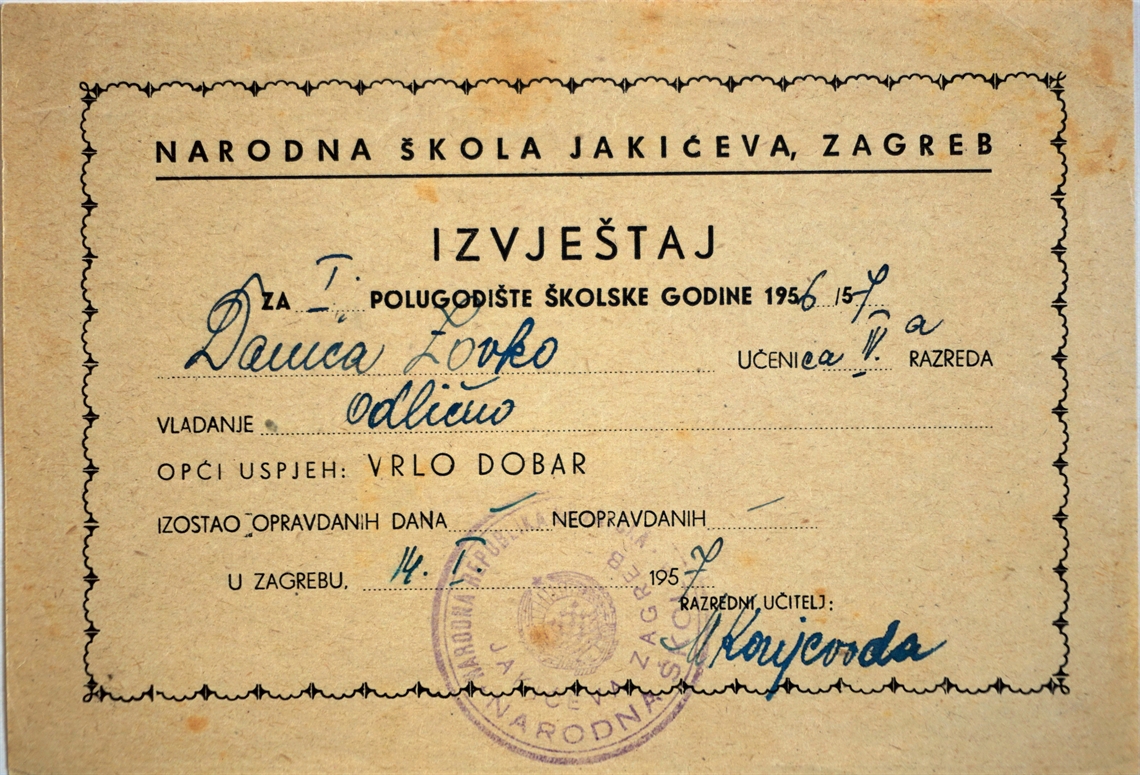 NARODNA ŠKOLA JAKIĆEVA, ZAGREB
IZVJEŠTAJ
ZA I. POLUGODIŠTE ŠKOLSKE GODINE 1956/57
Danica Zovko UČENICA IV. a RAZREDA
VLADANJE odlično
OPĆI USPJEH: VRLO DOBAR
IZOSTAO OPRAVDANIH DANA – NEOPRAVDANIH –
U ZAGREBU, 14. I. 1957
RAZREDNI UČITELJ:
NARODNA REPUBLIKA
NARODNA ŠKOLA
JAKIĆEVA ZAGREB